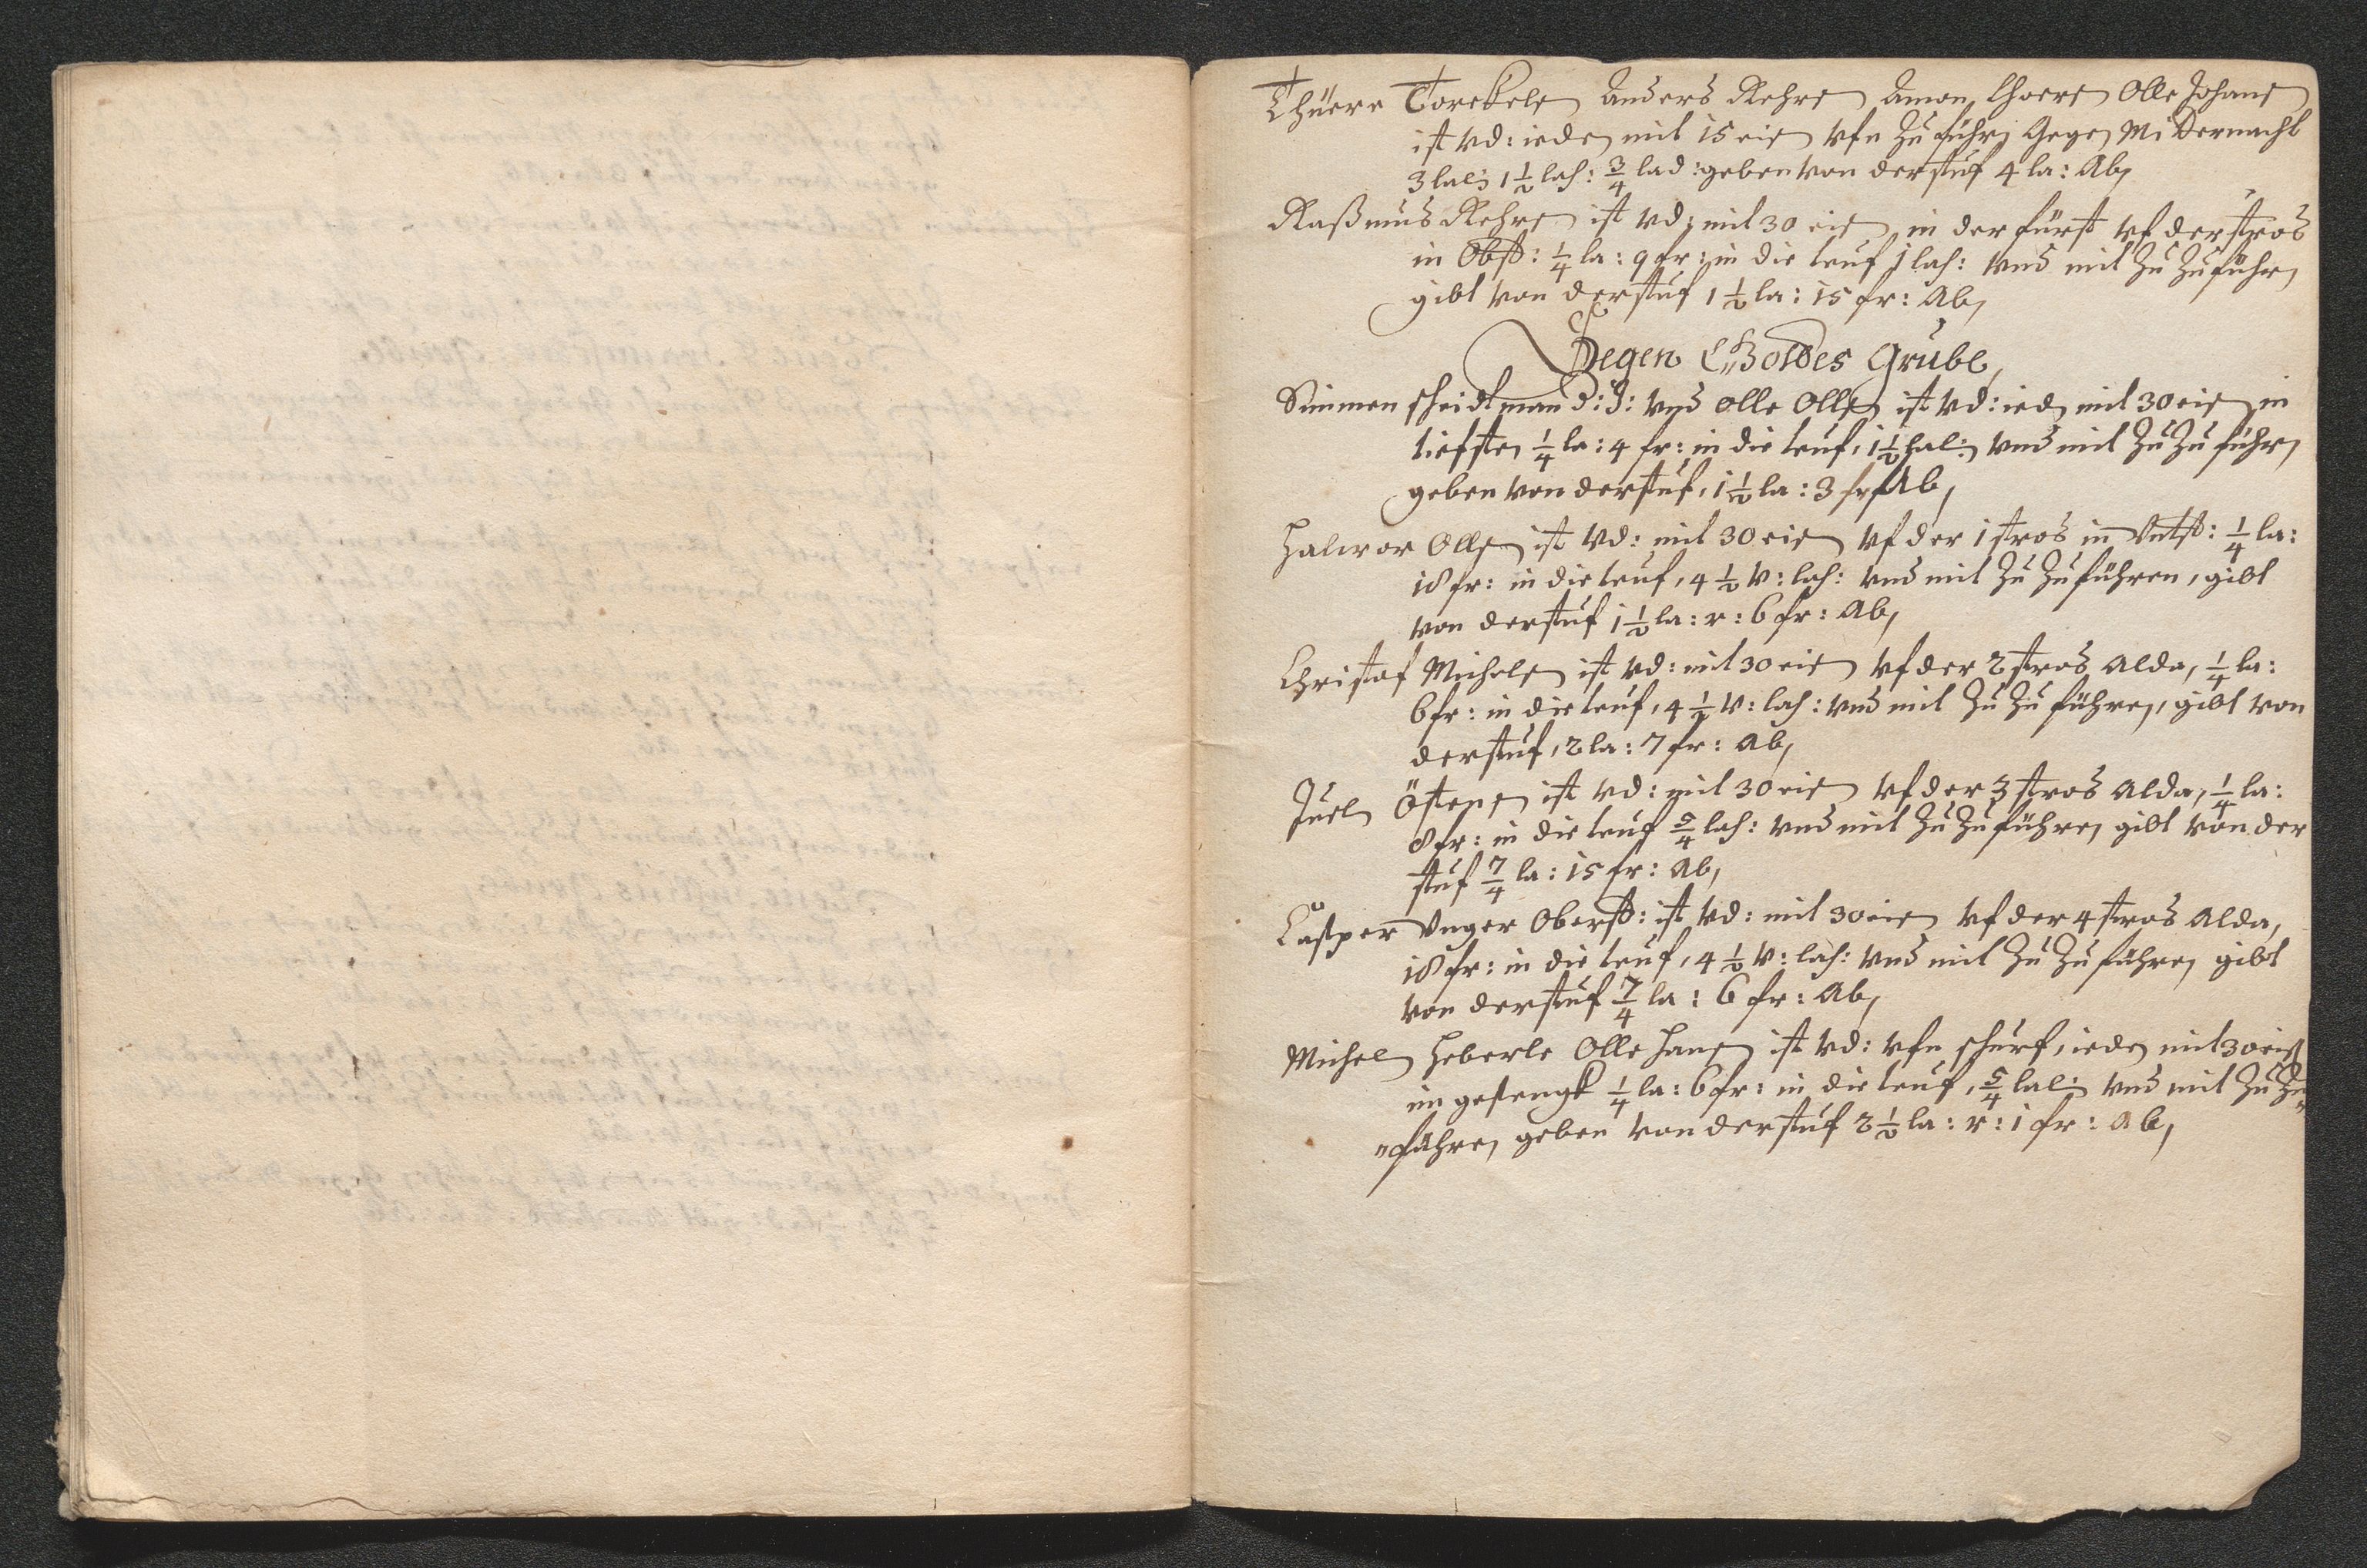 Thüere Torekels Anders Rehrs Amon Thoers Olle Johans
ist vd: ieder mit 15 eis vfn Zufuhr, Gegen Mitternacht
3 lal: 1 1/2 lach: 3/4 lad: geben von der stuf 4 la: Ab,
Raßmus Rehrs ist vd: mit 30 eis in der fürst vf der stros
in Obst: 1/4 la: 9 fr: in die teuf 1 lach: vnd mit Zu Zuführ,
gibt von der stuf 1 1/2 la: 15 fr: Ab,
Segen Gottes Grube,
Simmen scheidtman d: J: vnd Olle Olls ist vd: ied, mit 30 eis in
tiefsten 1/4 la: 4 fr: in die teuf, 1 1/2 lal: vnd mit Zu Zu führ,
geben von der stuf, 1 1/2 la: 3 fr Ab,
Halwor Olls ist vd: mit 30 eis vf der 1 stros in Vntst: 1/4 la:
18 fr: in die teuf, 4 1/2 v: lach: vnd mit Zu Zuführen, gibt
von der stuf 1 1/2 la: r: 6 fr: Ab,
Christof Michels ist vd: mit 30 eis vf der 2 stros alda, 1/4 la:
6 fr: in die teuf, 4 1/2 v: lach: vnd mit Zu Zu führen, gibt von
der stuf, 2 la: 7 fr: Ab,
Juel Östens ist vd: mit 30 eis vf der 3 stros alda, 1/4 la:
8 fr: in die teuf 5/4 lach: vnd mit Zu Zu führen gibt von der
stuf 7/4 la: 15 fr: Ab,
Casper Vnger Oberst: ist vd: mit 30 eis vf der 4 stros alda,
18 fr: in die teuf, 4 1/2 v: lach: vnd mit Zu Zu führen gibt
von der stuf 7/4 la: 6 fr: Ab,
Michel Heberle Olle Hans ist vd: vfn schurf, ieder mit 30 eis
im gesengk 1/4 la: 6 fr: in die teuf, 5/4 lal: vnd mit Zu Zu=
=führen geben von der stuf 2 1/2 la: r: 1 fr: Ab,